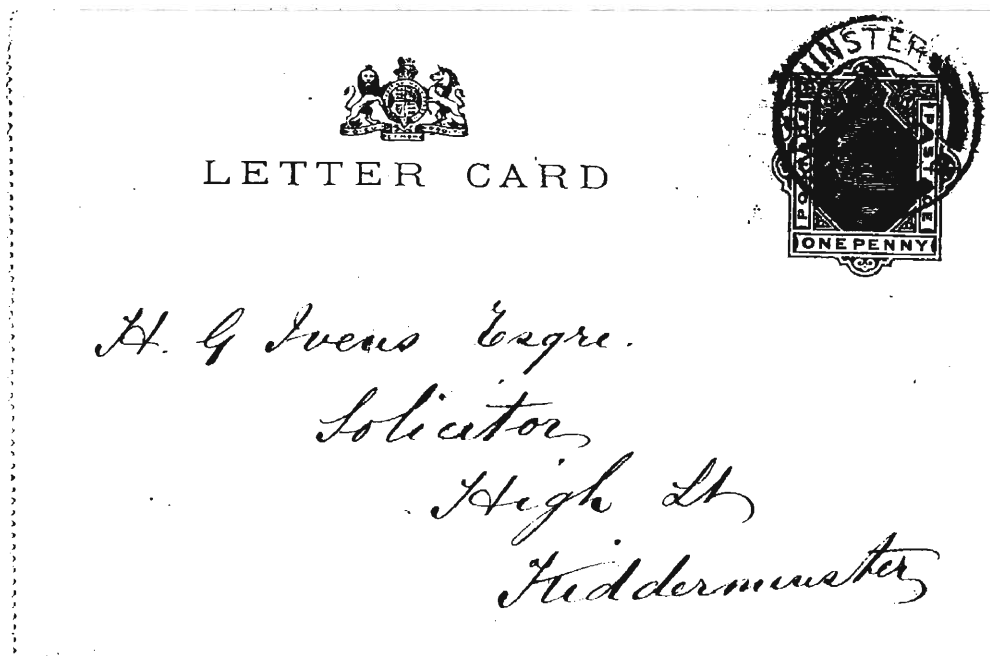 MINSTER
LETTER CARD
POSTAGE
POSTAGE
ONE PENNY
H. G Ivens Esqre.
Solicitor
High St
Kidderminster